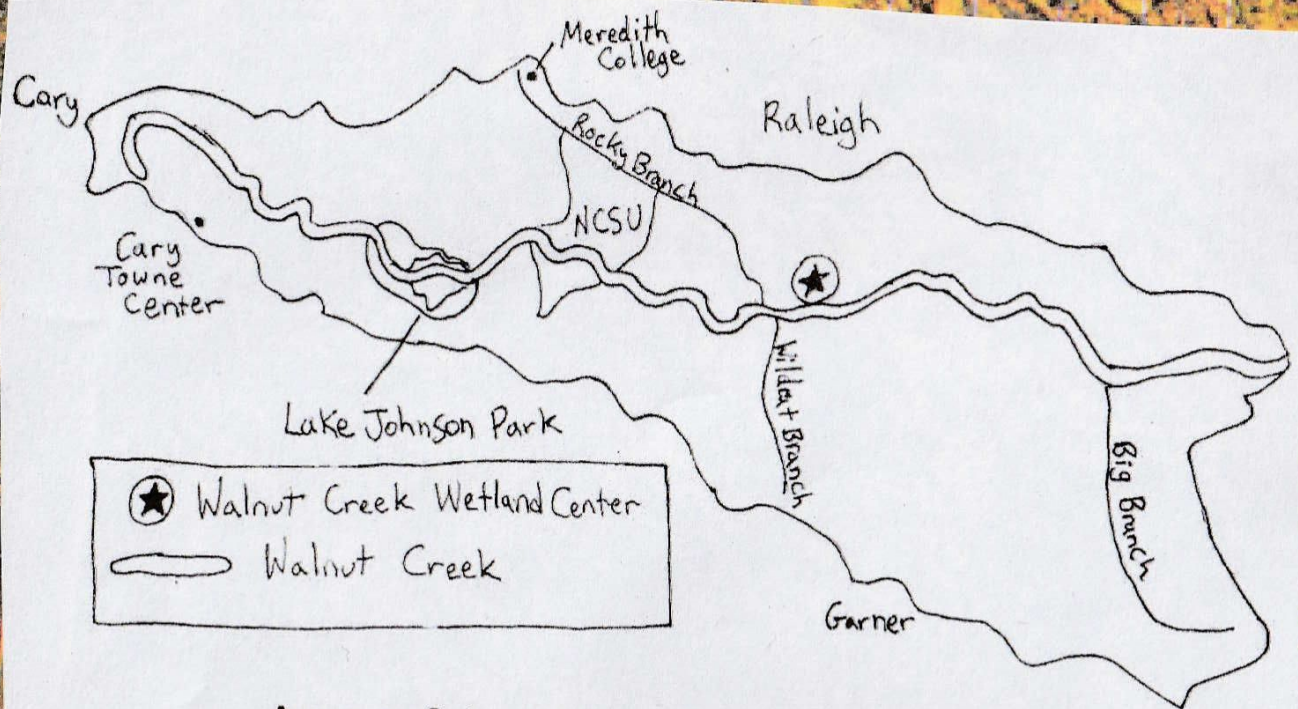 Meredith
College
Cary
Raleigh
Rocky Branch
NCSU
Cary
Towne
Center
Wildcat Branch
Lake Johnson Park
Big Branch
Walnut Creek Wetland Center
Walnut Creek
Garner